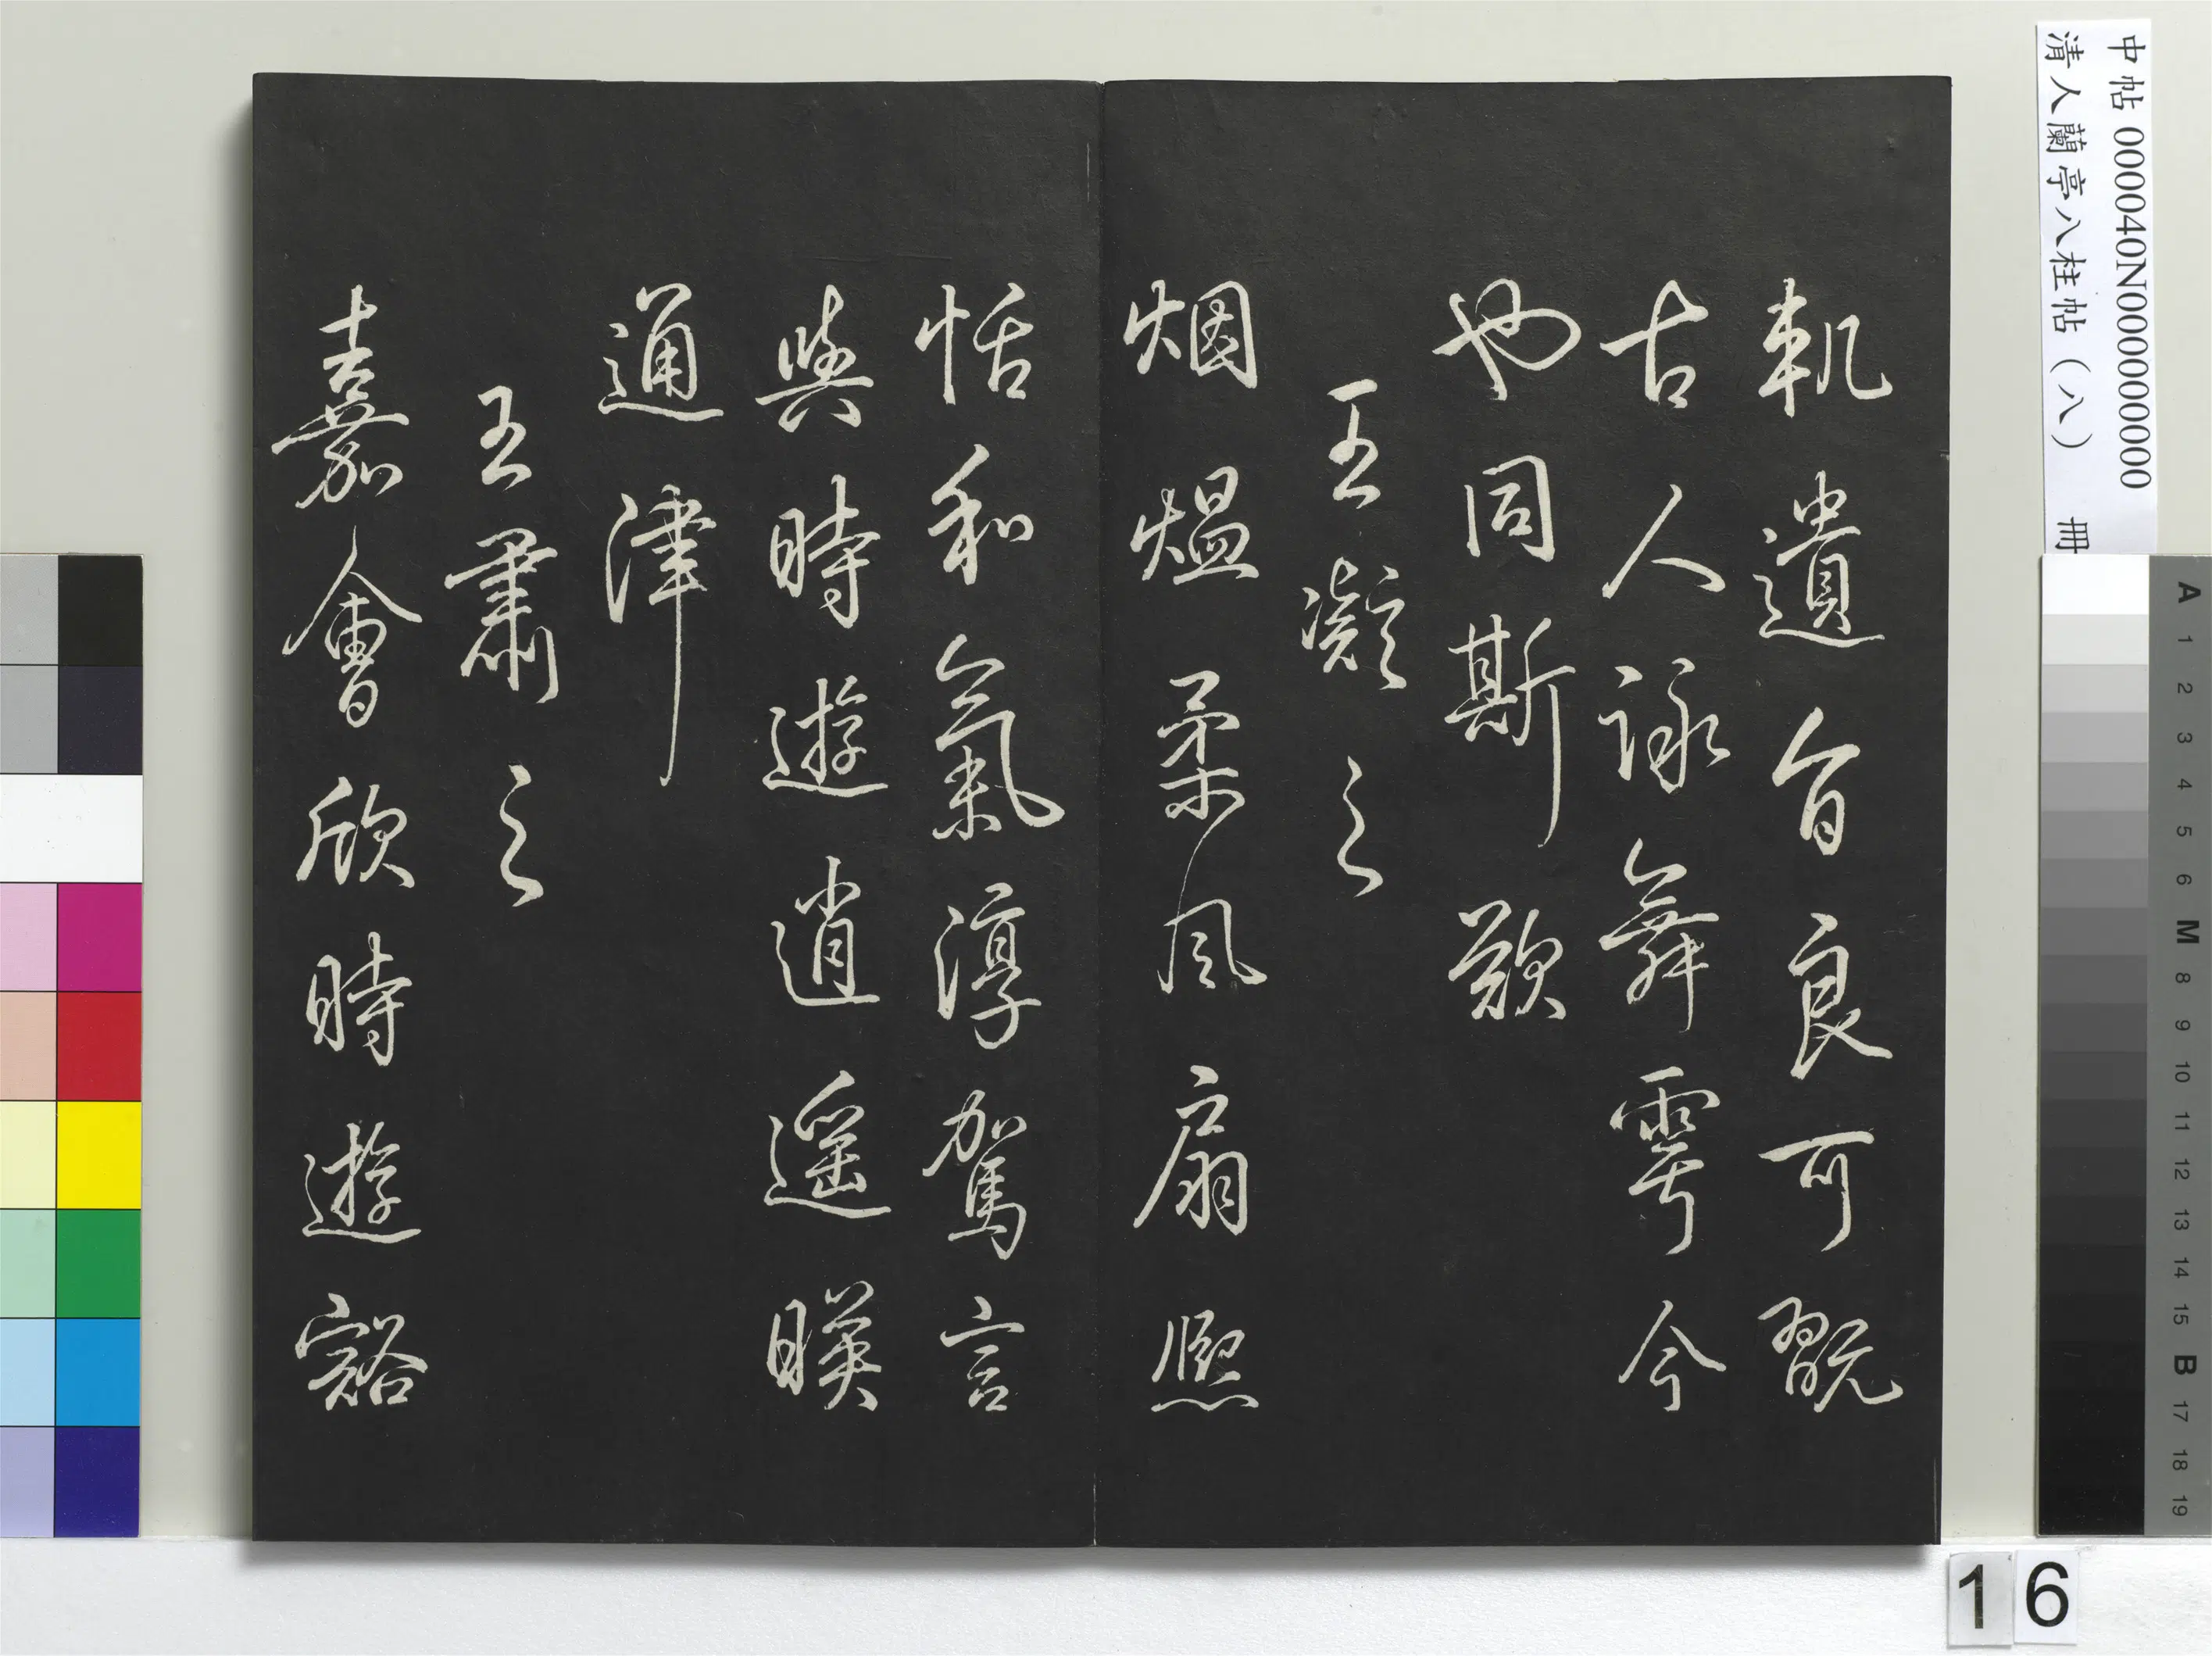 中帖 000040N000000000
清人蘭亭八柱帖（八） 冊
軌遺旨良可翫
古人詠舞雩今
也同斯歡
王凝之
烟熅柔風扇熈
恬和氣淳駕言
興時遊逍遥暎
通津
王肅之
嘉會欣時遊豁
A 1 2 3 4 5 6 M 8 9 10 11 12 13 14 15 B 17 18 19
16